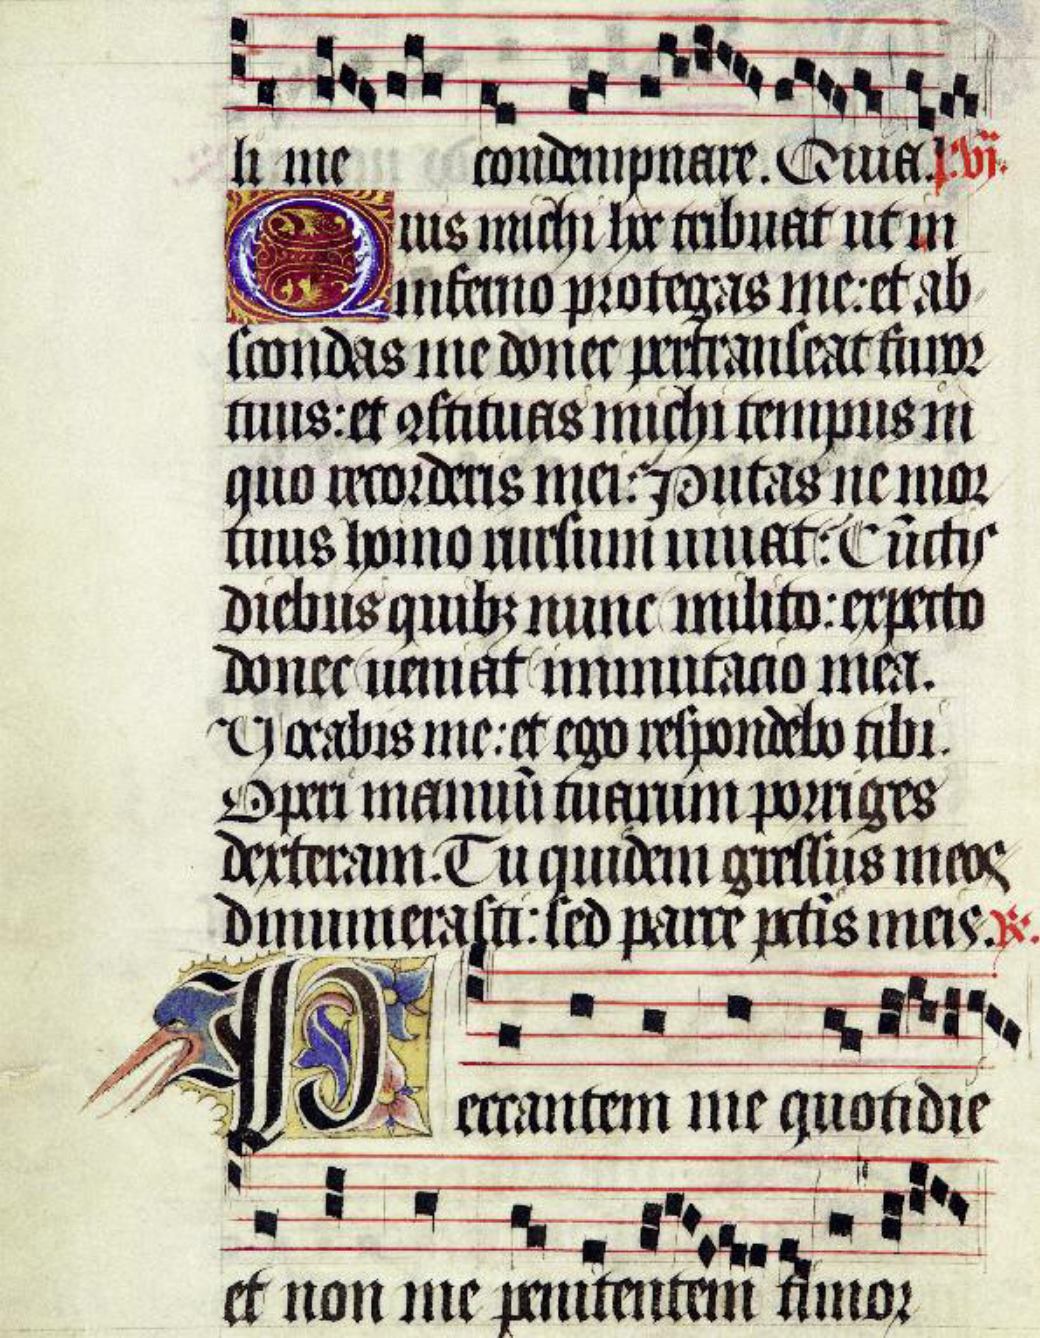 li me condempnare. Quia. l. vi.
Quis michi hoc tribuat ut in
inferno protegas me: et ab
scondas me donec pertranseat furor
tuus: et ꝯstituas michi tempus in
quo recorderis mei: Putas ne mor
tuus homo rursum uiuat: Cūctis
diebus quibꝫ nunc milito: expecto
donec ueniat inmutacio mea.
Vocabis me: et ego respondebo tibi.
Operi manuū tuarum porriges
dexteram. Tu quidem gressus meos
dinumerasti: sed parce pctīs meis. ℟.
Peccantem me quotidie
et non me penitentem timor